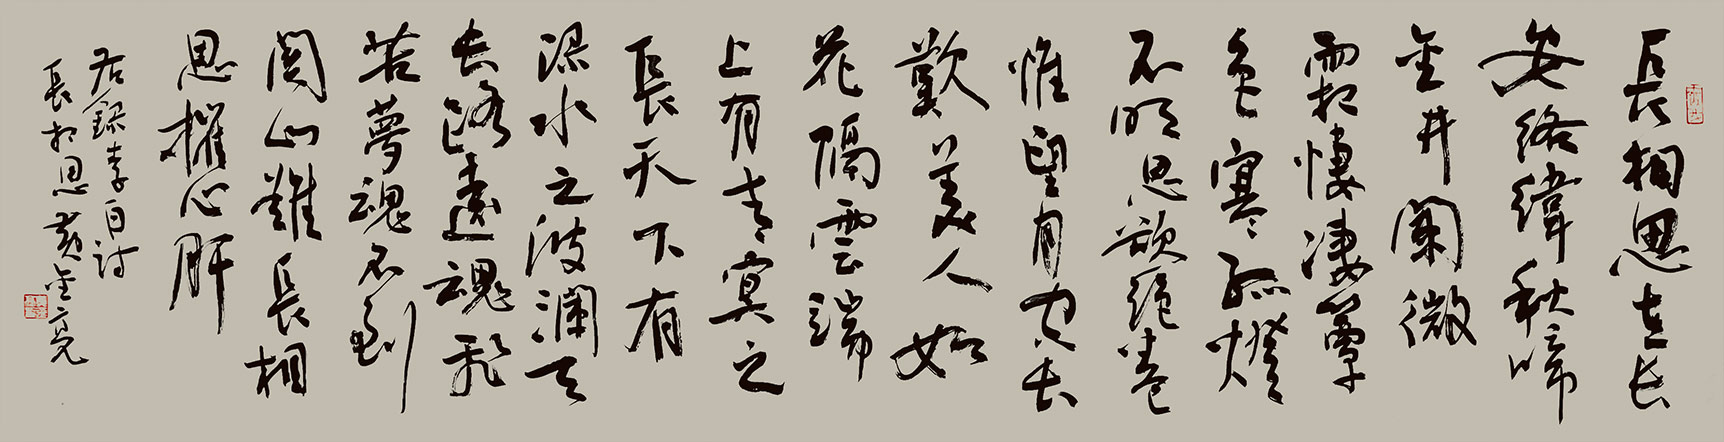 長相思在长
安絡緯秋啼
金井闌微
霜悽凄簟
色寒孤燈
不明思欲絕卷
惟望月空长
歎美人如
花隔雲端
上有青冥之
長天下有
渌水之波瀾天
长路遠魂飛
苦夢魂不到
関山難長相
思摧心肝
右錄李白詩
長相思黄金亮